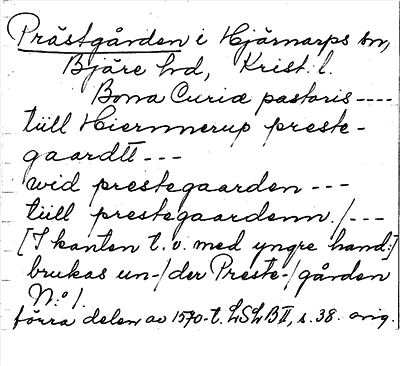 Prästgården i Hjärnarps sn,
Bjäre hd, Krist. l.
Bona Curiæ pastoris ----
tiill Hiernnerup preste-
gaardtt ---
wid prestegaarden ---
tiill prestegaardenn /---
[I kanten t. v. med yngre hand:]
brukas un-/der Preste-/gården
N:o 1.
förra delen av 1570-t. LSLBII, s. 38. orig.